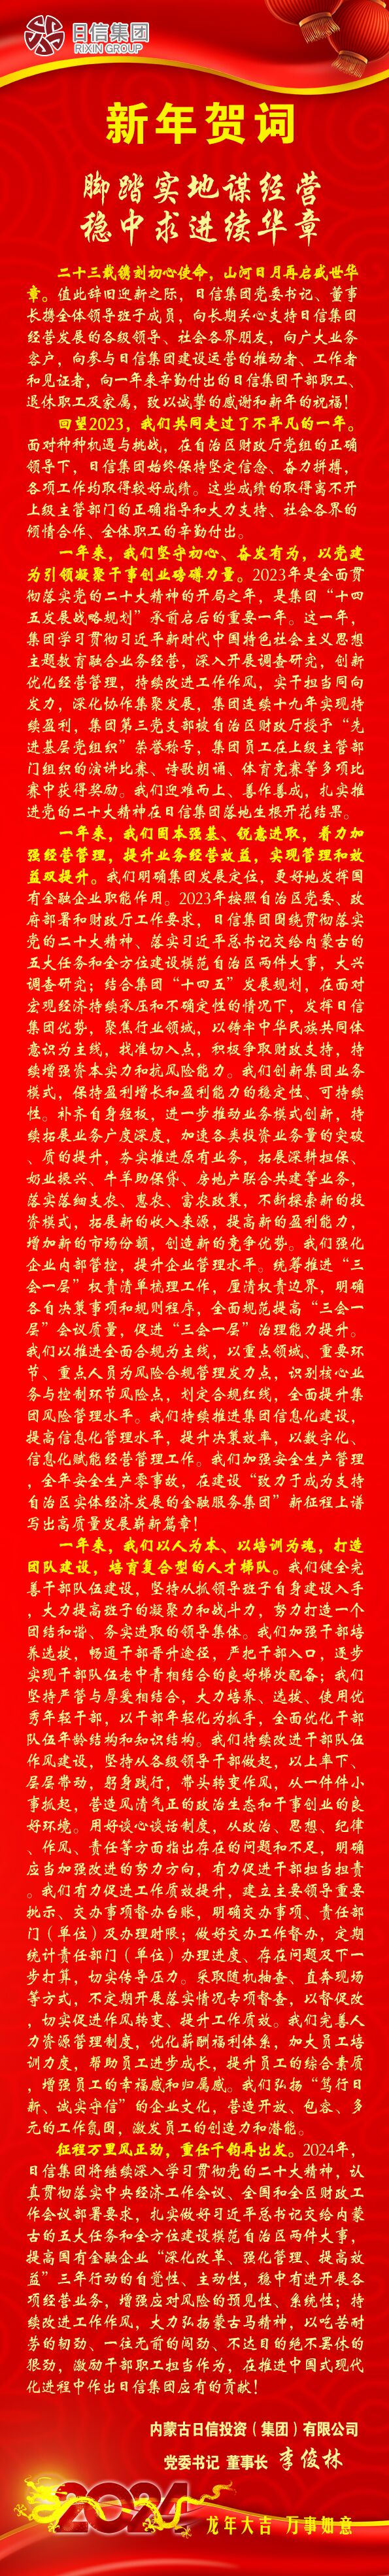 日信集团
RIXIN GROUP
新年贺词
脚踏实地谋经营
稳中求进续华章
二十三载镌刻初心使命，山河日月再启盛世华
章。值此辞旧迎新之际，日信集团党委书记、董事
长携全体领导班子成员，向长期关心支持日信集团
经营发展的各级领导、社会各界朋友，向广大业务
客户，向参与日信集团建设运营的推动者、工作者
和见证者，向一年来辛勤付出的日信集团干部职工、
退休职工及家属，致以诚挚的感谢和新年的祝福！
回望2023，我们共同走过了不平凡的一年。
面对种种机遇与挑战，在自治区财政厅党组的正确
领导下，日信集团始终保持坚定信念、奋力拼搏，
各项工作均取得较好成绩。这些成绩的取得离不开
上级主管部门的正确指导和大力支持、社会各界的
倾情合作、全体职工的辛勤付出。
一年来，我们坚守初心、奋发有为，以党建
为引领凝聚干事创业磅礴力量。2023年是全面贯
彻落实党的二十大精神的开局之年，是集团“十四
五发展战略规划”承前启后的重要一年。这一年，
集团学习贯彻习近平新时代中国特色社会主义思想
主题教育融合业务经营，深入开展调查研究，创新
优化经营管理，持续改进工作作风，实干担当同向
发力，深化协作集聚发展，集团连续十九年实现持
续盈利，集团第三党支部被自治区财政厅授予“先
进基层党组织”荣誉称号，集团员工在上级主管部
门组织的演讲比赛、诗歌朗诵、体育竞赛等多项比
赛中获得奖励。我们迎难而上、善作善成，扎实推
进党的二十大精神在日信集团落地生根开花结果。
一年来，我们固本强基、锐意进取，着力加
强经营管理，提升业务经营效益，实现管理和效
益双提升。我们明确集团发展定位，更好地发挥国
有金融企业职能作用。2023年按照自治区党委、政
府部署和财政厅工作要求，日信集团围绕贯彻落实
党的二十大精神、落实习近平总书记交给内蒙古的
五大任务和全方位建设模范自治区两件大事，大兴
调查研究；结合集团“十四五”发展规划，在面对
宏观经济持续承压和不确定性的情况下，发挥日信
集团优势，聚焦行业领域，以铸牢中华民族共同体
意识为主线，找准切入点，积极争取财政支持，持
续增强资本实力和抗风险能力。我们创新集团业务
模式，保持盈利增长和盈利能力的稳定性、可持续
性。补齐自身短板，进一步推动业务模式创新，持
续拓展业务广度深度，加速各类投资业务量的突破
、质的提升，夯实推进原有业务，拓展深耕担保、
奶业振兴、牛羊助保贷、房地产联合共建等业务，
落实落细支农、惠农、富农政策，不断探索新的投
资模式，拓展新的收入来源，提高新的盈利能力，
增加新的市场份额，创造新的竞争优势。我们强化
企业内部管控，提升企业管理水平。统筹推进“三
会一层”权责清单梳理工作，厘清权责边界，明确
各自决策事项和规则程序，全面规范提高“三会一
层”会议质量，促进“三会一层”治理能力提升。
我们以推进全面合规为主线，以重点领域、重要环
节、重点人员为风险合规管理发力点，识别核心业
务与控制环节风险点，划定合规红线，全面提升集
团风险管理水平。我们持续推进集团信息化建设，
提高信息化管理水平，提升决策效率，以数字化、
信息化赋能经营管理工作。我们加强安全生产管理
，全年安全生产零事故，在建设“致力于成为支持
自治区实体经济发展的金融服务集团”新征程上谱
写出高质量发展崭新篇章！
一年来，我们以人为本、以培训为魂，打造
团队建设，培育复合型的人才梯队。我们健全完
善干部队伍建设，坚持从抓领导班子自身建设入手
，大力提高班子的凝聚力和战斗力，努力打造一个
团结和谐、务实进取的领导集体。我们加强干部培
养选拔，畅通干部晋升途径，严把干部入口，逐步
实现干部队伍老中青相结合的良好梯次配备；我们
坚持严管与厚爱相结合，大力培养、选拔、使用优
秀年轻干部，以干部年轻化为抓手，全面优化干部
队伍年龄结构和知识结构。我们持续改进干部队伍
作风建设，坚持从各级领导干部做起，以上率下、
层层带动，躬身践行，带头转变作风，从一件件小
事抓起，营造风清气正的政治生态和干事创业的良
好环境。用好谈心谈话制度，从政治、思想、纪律
、作风、责任等方面指出存在的问题和不足，明确
应当加强改进的努力方向，有力促进干部担当担责
。我们有力促进工作质效提升，建立主要领导重要
批示、交办事项督办台账，明确交办事项、责任部
门（单位）及办理时限；做好交办工作督办，定期
统计责任部门（单位）办理进度、存在问题及下一
步打算，切实传导压力。采取随机抽查、直奔现场
等方式，不定期开展落实情况专项督查，以督促改
，切实促进作风转变、提升工作质效。我们完善人
力资源管理制度，优化薪酬福利体系，加大员工培
训力度，帮助员工进步成长，提升员工的综合素质
，增强员工的幸福感和归属感。我们弘扬“笃行日
新、诚实守信”的企业文化，营造开放、包容、多
元的工作氛围，激发员工的创造力和潜能。
征程万里风正劲，重任千钧再出发。2024年，
日信集团将继续深入学习贯彻党的二十大精神，认
真贯彻落实中央经济工作会议、全国和全区财政工
作会议部署要求，扎实做好习近平总书记交给内蒙
古的五大任务和全方位建设模范自治区两件大事，
提高国有金融企业“深化改革、强化管理、提高效
益”三年行动的自觉性、主动性，稳中有进开展各
项经营业务，增强应对风险的预见性、系统性；持
续改进工作作风，大力弘扬蒙古马精神，以吃苦耐
劳的韧劲、一往无前的闯劲、不达目的绝不罢休的
狠劲，激励干部职工担当作为，在推进中国式现代
化进程中作出日信集团应有的贡献！
内蒙古日信投资（集团）有限公司
党委书记 董事长 李俊林
2024 龙年大吉 万事如意